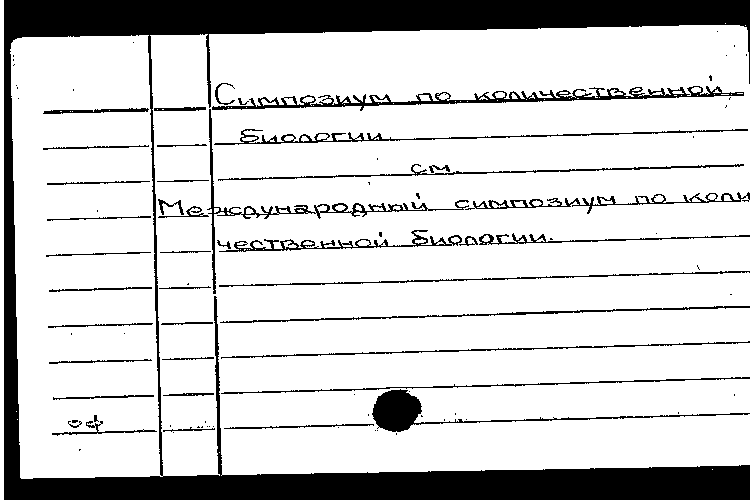 Симпозиум по количественной
биологии
см.
Международный симпозиум по коли
чественной биологии.
оф